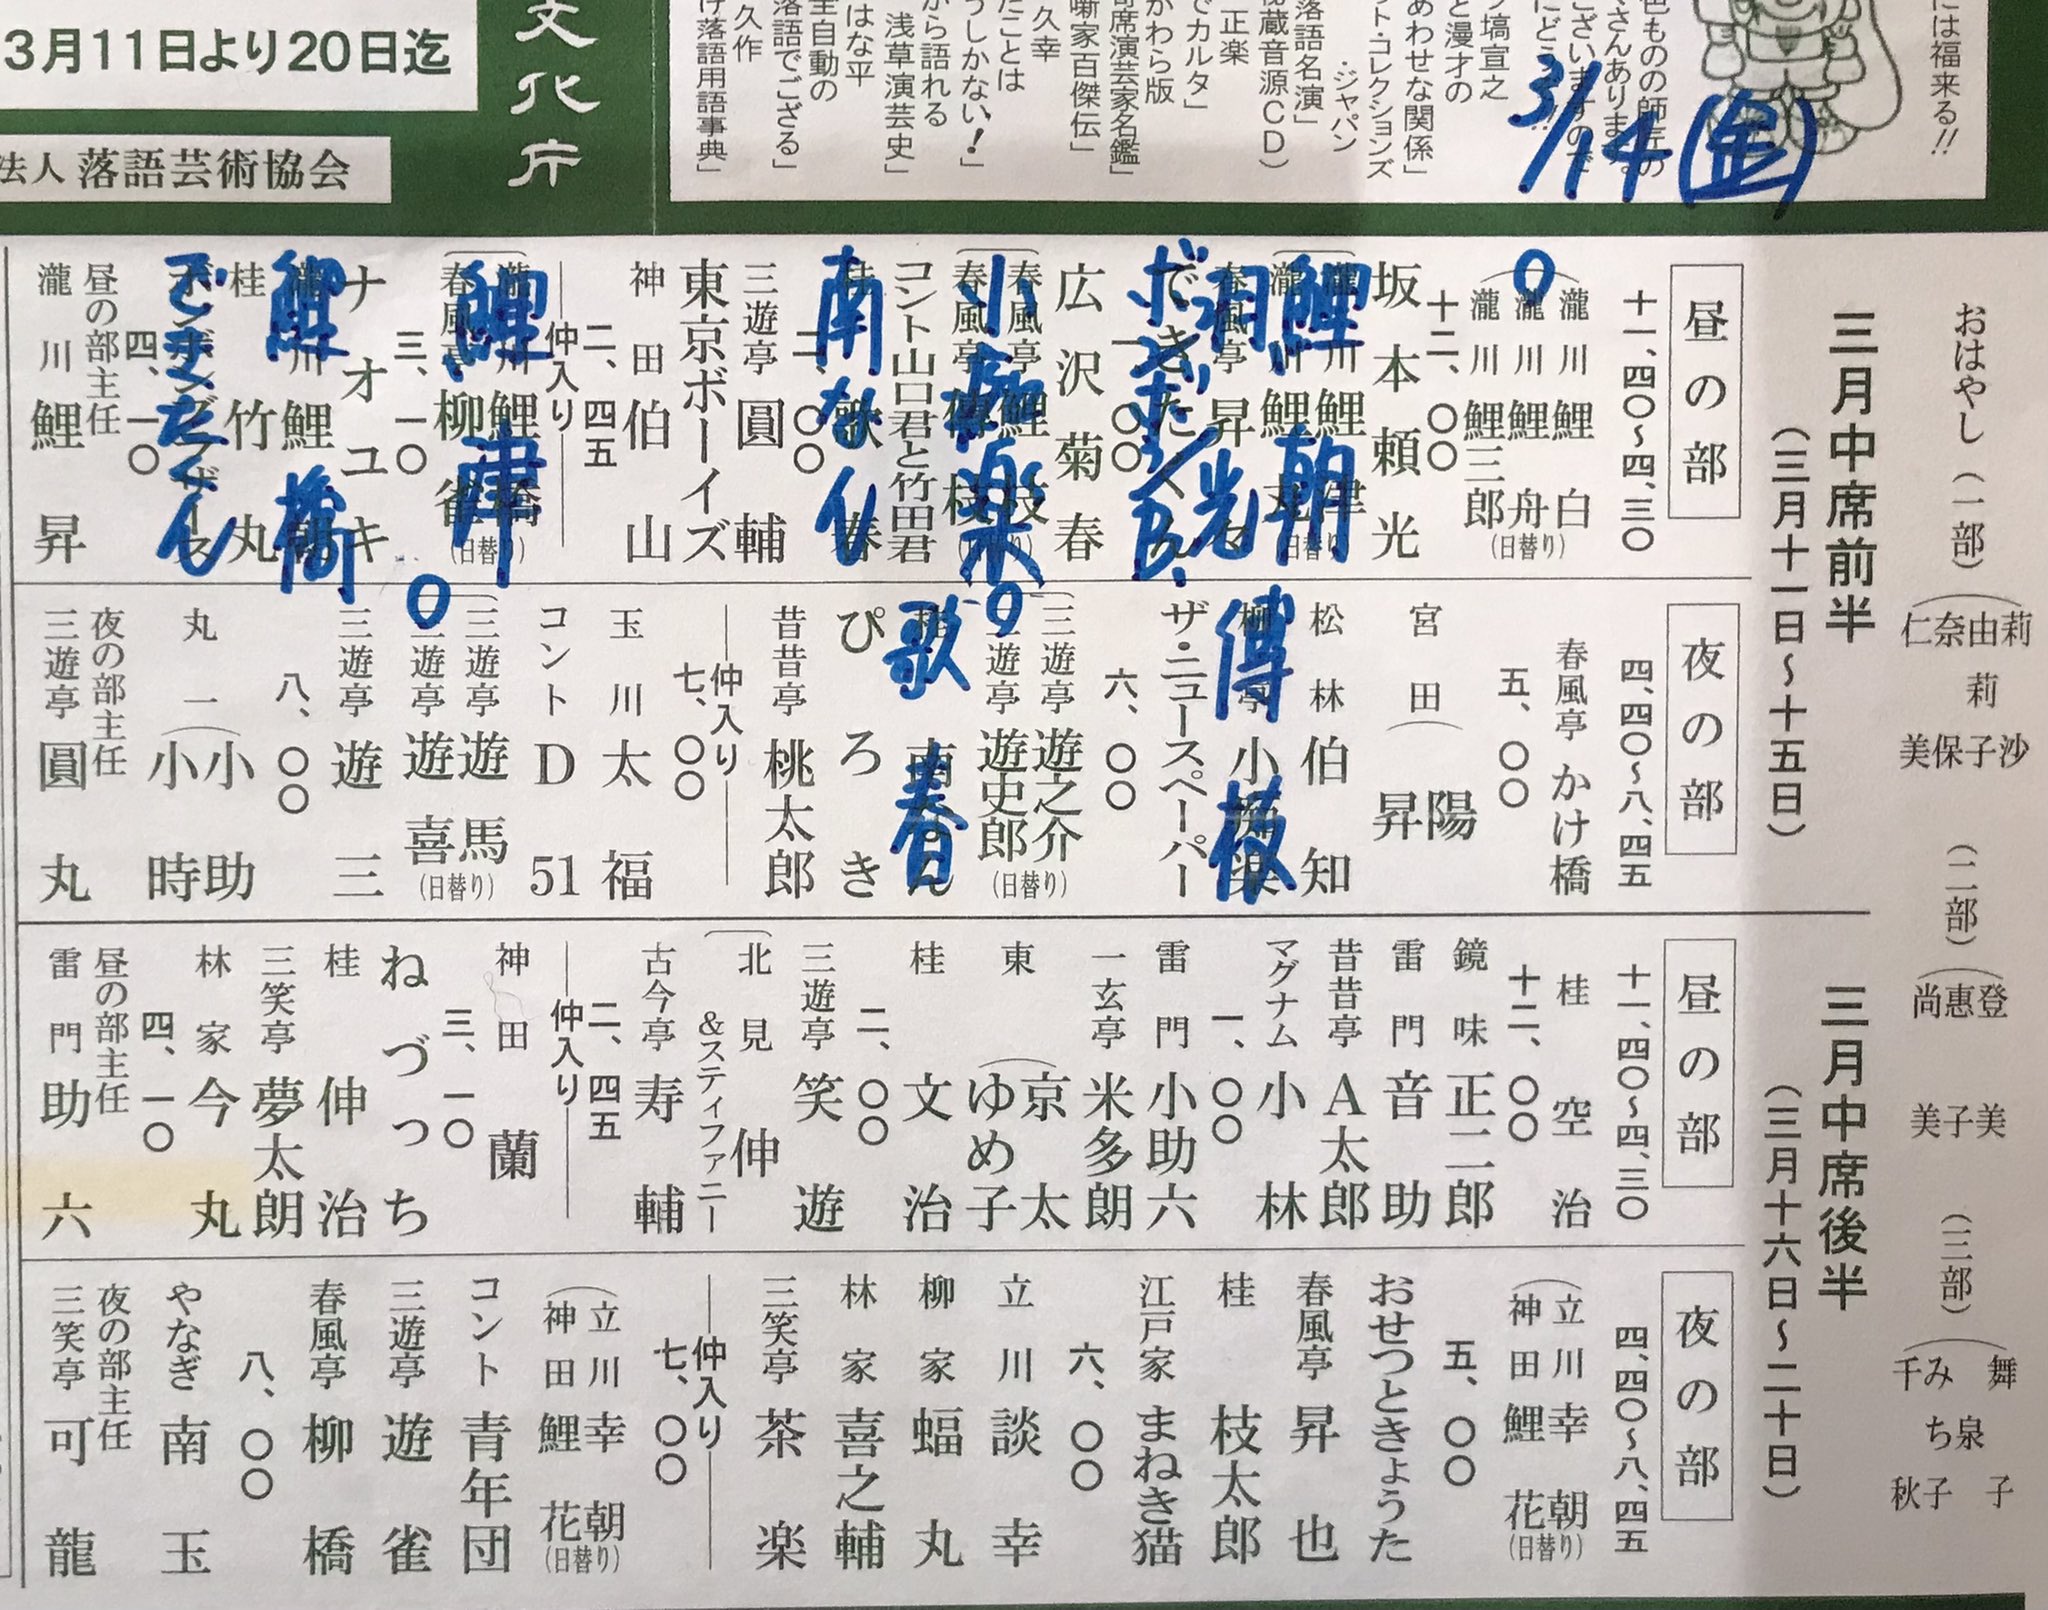 には福来る!!
3/14(金)
塙宣之
と漫才の
あわせな関係」
ット・コレクションズ
・ジャパン
落語名演」
秘蔵音源CD)
正楽
でカルタ」
かわら版
寄席演芸家名鑑」
噺家百傑伝」
久幸
たことは
うしかない!」
から語れる
浅草演芸史」
はな平
全自動の
落語でござる」
久作
け落語用語事典」
文化庁
3月11日より20日迄
法人 落語芸術協会
おはやし(一部)
仁奈由莉
莉
美保子沙
(二部)
尚惠登
美子美
(三部)
千み 舞
ち泉
秋子 子
三月中席前半
(三月十一日〜十五日)
昼の部
十一、四〇〜四、三〇
瀧川鯉白
瀧川鯉舟
瀧川鯉三郎
(日替り)
十二、〇〇
坂本頼光
瀧川鯉津
瀧川鯉丸
(日替り)
鯉朝
春風亭昇々
できたくん
ボンボンB.
一、〇〇
広沢菊春
春風亭鯉枝
春風亭傳枝
(日替り)
小痴楽
コント山口君と竹田君
桂歌春
南なん
二、〇〇
三遊亭圓輔
東京ボーイズ
神田伯山
二、四五
仲入り
瀧川鯉橋
春風亭柳雀
(日替り)
鯉津
三、一〇
ナオユキ
瀧川鯉朝
鯉橋
桂竹丸
ボンボンブラザース
できたくん
四、一〇
昼の部主任
瀧川鯉昇
夜の部
四、四〇〜八、四五
春風亭かけ橋
五、〇〇
宮田(陽
昇
松林伯知
柳亭小痴楽
傳枝
ザ・ニュースペーパー
六、〇〇
三遊亭遊之介
三遊亭遊史郎
(日替り)
桂南なん
歌春
ぴろき
昔昔亭桃太郎
仲入り
七、〇〇
玉川太福
コントD51
三遊亭遊馬
三遊亭遊喜
(日替り)
三遊亭遊三
八、〇〇
丸一(小助
小時
夜の部主任
三遊亭圓丸
三月中席後半
(三月十六日〜二十日)
昼の部
十一、四〇〜四、三〇
桂空治
十二、〇〇
鏡味正二郎
雷門音助
昔昔亭A太郎
マグナム小林
一、〇〇
雷門小助六
一玄亭米多朗
東(京太
ゆめ子
桂文治
二、〇〇
三遊亭笑遊
北見伸
&スティファニー
古今亭寿輔
二、四五
仲入り
神田蘭
三、一〇
ねづっち
桂伸治
三笑亭夢太朗
林家今丸
四、一〇
昼の部主任
雷門助六
夜の部
四、四〇〜八、四五
立川幸朝
神田鯉花
(日替り)
五、〇〇
おせつときょうた
春風亭昇也
桂枝太郎
江戸家まねき猫
六、〇〇
立川談幸
柳家蝠丸
林家喜之輔
三笑亭茶楽
仲入り
七、〇〇
立川幸朝
神田鯉花
(日替り)
コント青年団
三遊亭遊雀
春風亭柳橋
八、〇〇
やなぎ南玉
夜の部主任
三笑亭可龍